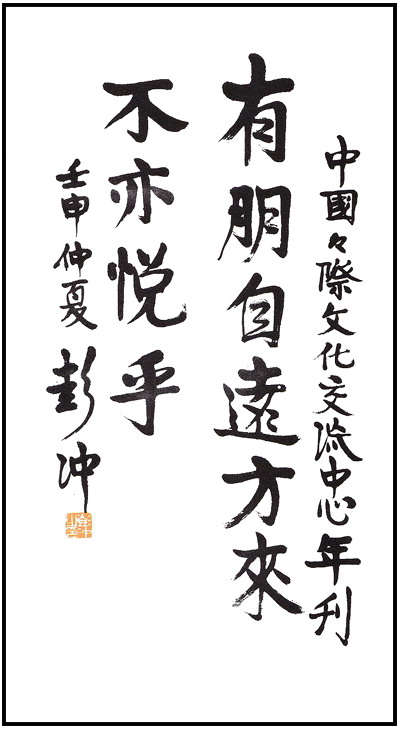 中國々際文化交流中心年刊
有朋自遠方來
不亦悦乎
壬申仲夏
彭冲